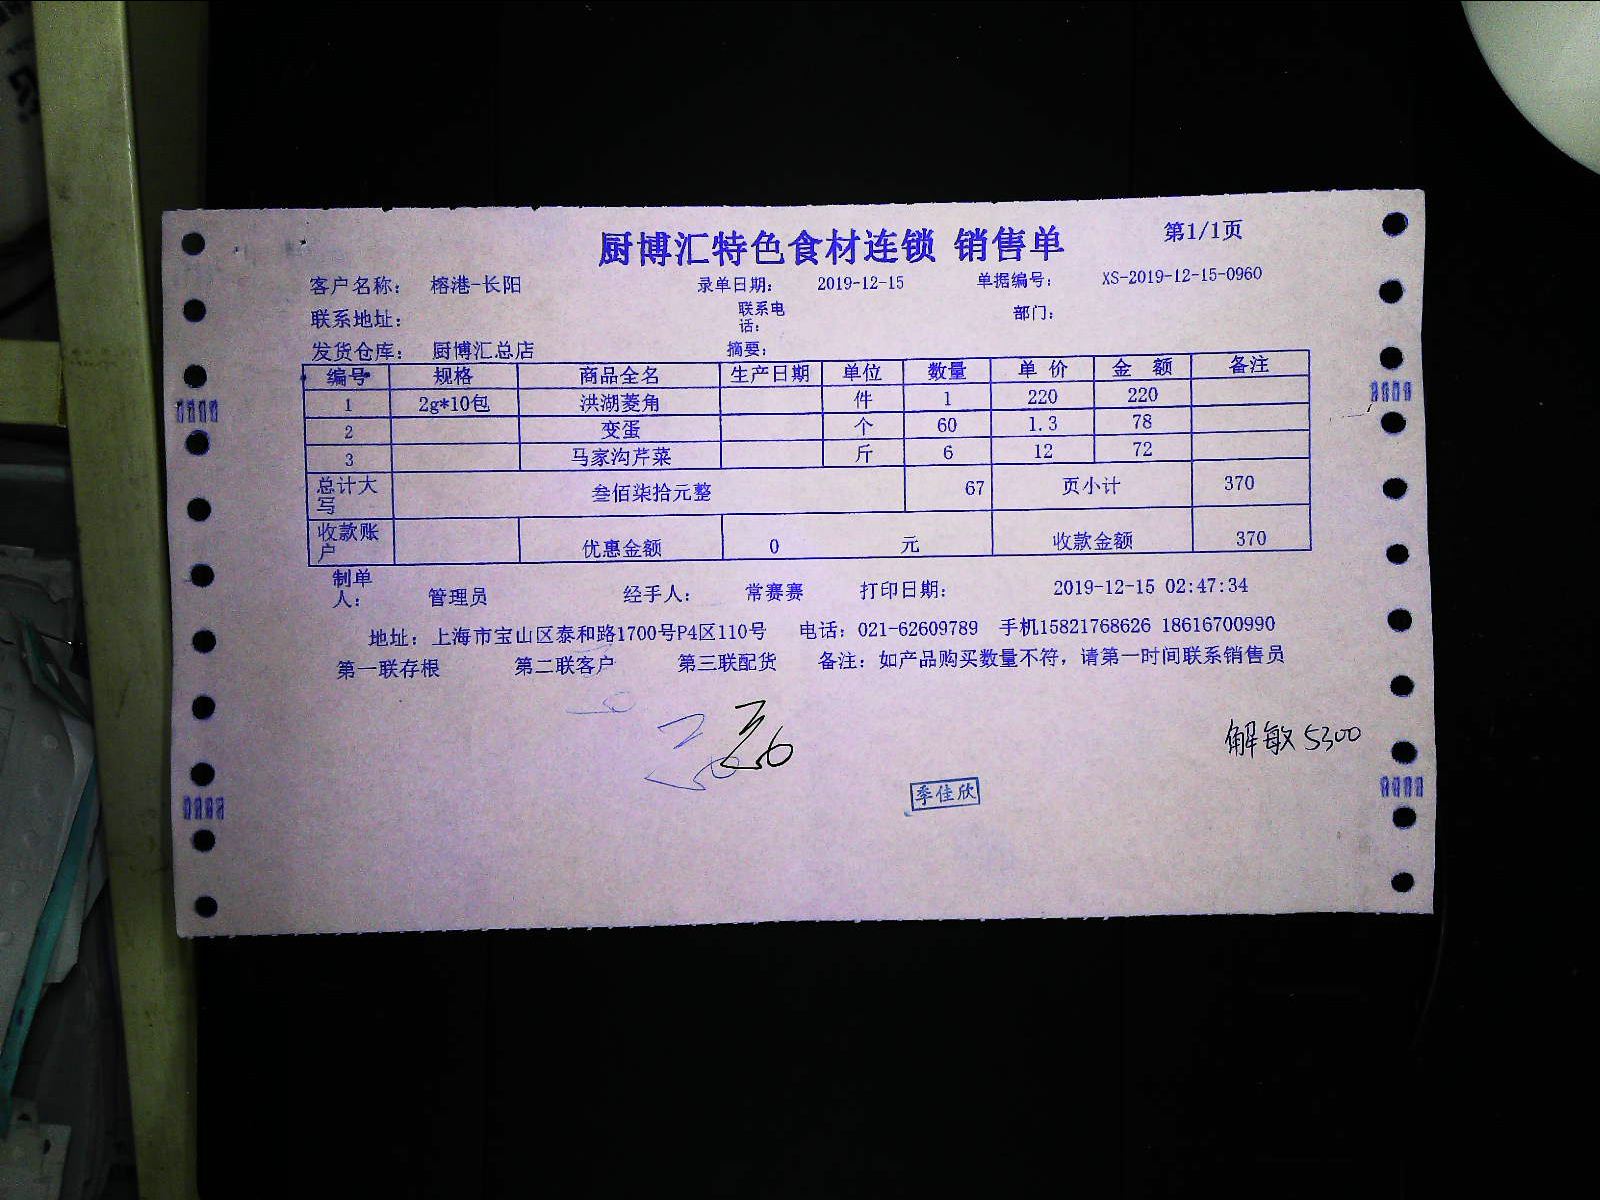 厨博汇特色食材连锁 销售单 第1/1页
客户名称: 榕港-长阳 录单日期: 2019-12-15 单据编号: XS-2019-12-15-0960
联系地址: 联系电话: 部门:
发货仓库: 厨博汇总店 摘要:
编号 规格 商品全名 生产日期 单位 数量 单 价 金 额 备注
1 2g*10包 洪湖菱角 件 1 220 220
2 变蛋 个 60 1.3 78
3 马家沟芹菜 斤 6 12 72
总计大写 叁佰柒拾元整 67 页小计 370
收款账户 优惠金额 0 元 收款金额 370
制单人: 管理员 经手人: 常赛赛 打印日期: 2019-12-15 02:47:34
地址: 上海市宝山区泰和路1700号P4区110号 电话: 021-62609789 手机15821768626 18616700990
第一联存根 第二联客户 第三联配货 备注: 如产品购买数量不符, 请第一时间联系销售员
解敏 5300
季佳欣